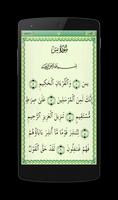 سُورَةُ يسٓ
بِسْمِ اللَّهِ الرَّحْمَٰنِ الرَّحِيمِ
يسٓ وَالْقُرْآنِ الْحَكِيمِ
إِنَّكَ لَمِنَ الْمُرْسَلِينَ عَلَى
صِرَاطٍ مُسْتَقِيمٍ تَنْزِيلَ الْعَزِيزِ الرَّحِيمِ
لِتُنْذِرَ قَوْمًا مَا أُنْذِرَ آبَاؤُهُمْ
فَهُمْ غَافِلُونَ لَقَدْ حَقَّ الْقَوْلُ